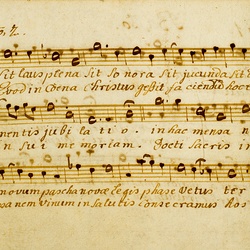 Sit laus plena sit so nora sit jucunda sit
Quod in Coena Christus gessit fa ciendum hoc
mentis jubi la ti o. in hac mensa
in sui me moriam. Docti sacris in
novum pascha novae legis phase Vetus ter
panem Vinum in salutis consecramus hos